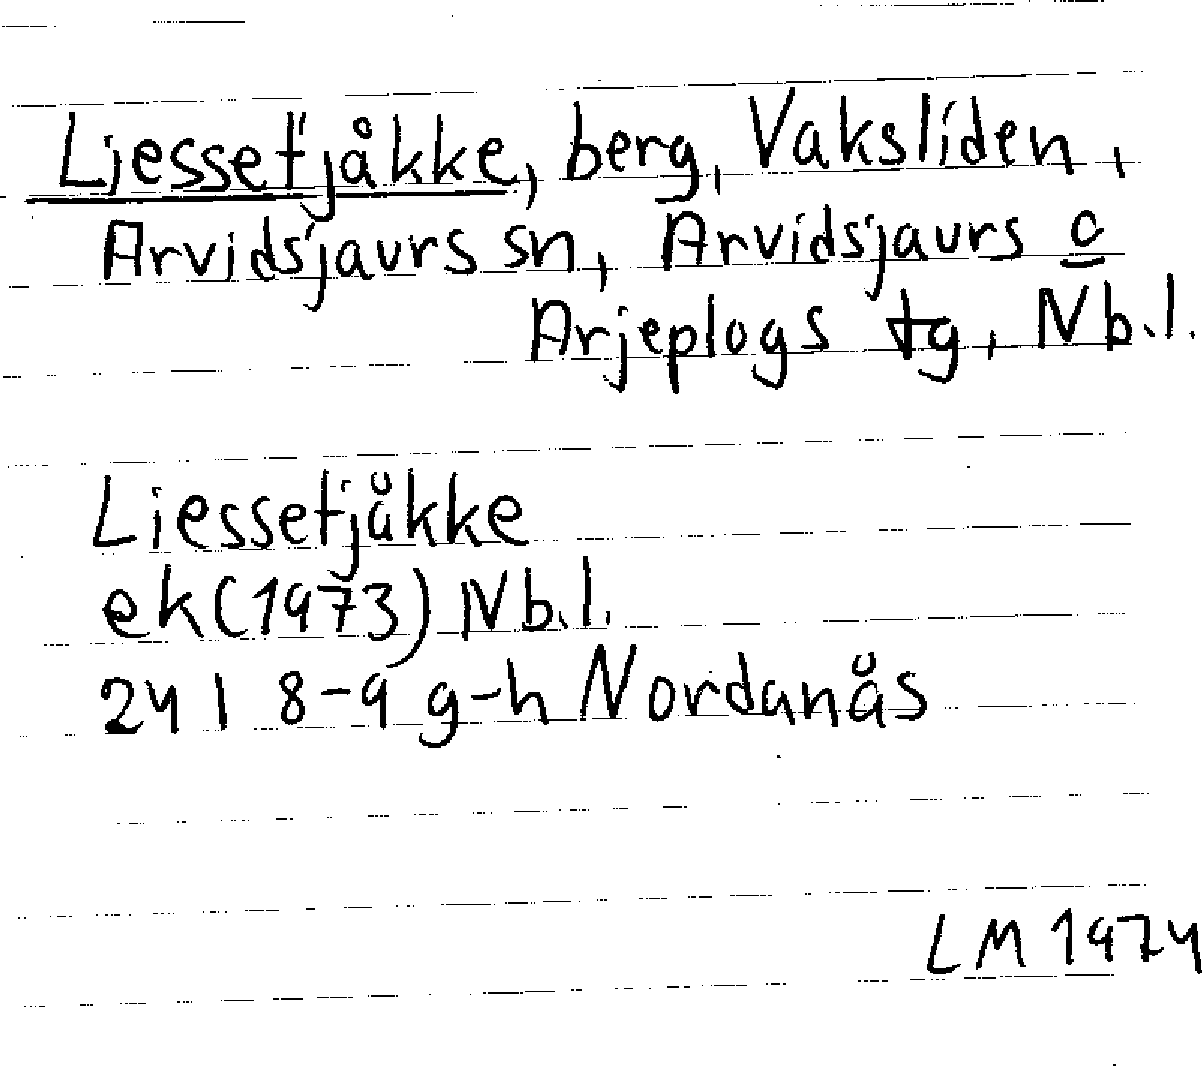 Liessetjåkke, berg, Vaksliden,
Arvidsjaurs sn, Arvidsjaurs o
Arjeplogs tg, Nb.l.
Liessetjåkke
ek (1973) Nb.l.
24 I 8-9 g-h Nordanås
LM 1974